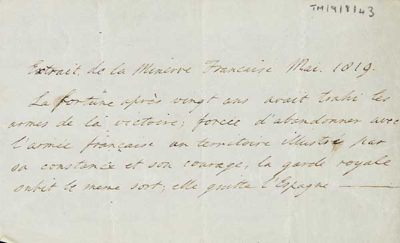 TM/9/8/43
Extrait de la Minerve Francaise Mai. 1819.
La fortune après vingt ans avait trahi les
armes de la victoire; forcée d'abandonner avec
l'armée française un territoire illustré par
sa constance et son courage, la garde royale
subit le meme sort; elle quitta l'Espagne ———